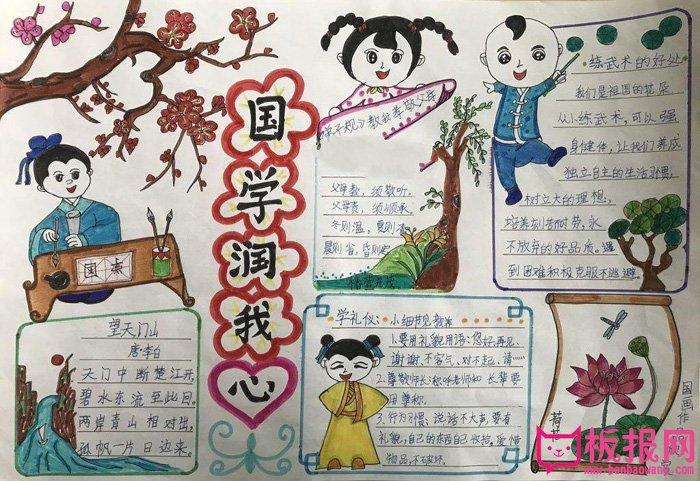 国学润我心
国
学
望天门山
唐李白
天门中断楚江开,
碧水东流至此回。
两岸青山相对出,
孤帆一片日边来。
弟子规》教会孝敬父母
父母教，须敬听，
父母责，须顺承。
冬则温，夏则
晨则省，昏则定
练武术的好处
我们是祖国的花朵
从小练武术，可以强
身健体，让我们养成
独立自主的生活习惯，
树立大的理想，
培养刻苦耐劳，永
不放弃的好品质。遇
到困难积极克服不逃避。
学礼仪：小细节见教养
1.要用礼貌用语：您好、再见、
谢谢、不客气、对不起、请……
2.尊敬师长：称呼老师和长辈要
用尊称。
3.行为习惯：说话不大声，要有
礼貌，自己的东西自己收拾，爱惜
物品，不破坏。
国画作
板报网
www.banbaowang.com